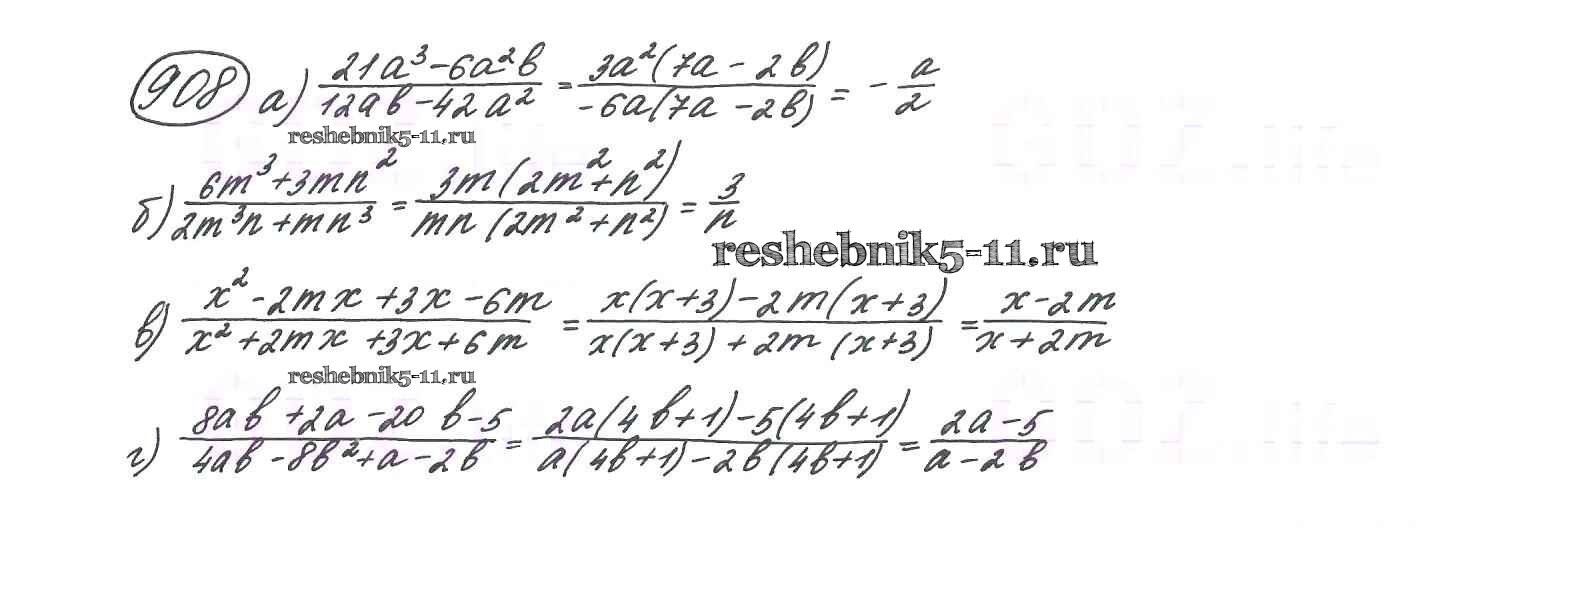 908 а) (21a³-6a²b)/(12ab-42a²) = (3a²(7a-2b))/(-6a(7a-2b)) = -a/2
reshebnik5-11.ru
б) (6m³+3mn²)/(2m³n+mn³) = (3m(2m²+n²))/(mn(2m²+n²)) = 3/n
reshebnik5-11.ru
в) (x²-2mx+3x-6m)/(x²+2mx+3x+6m) = (x(x+3)-2m(x+3))/(x(x+3)+2m(x+3)) = (x-2m)/(x+2m)
reshebnik5-11.ru
г) (8ab+2a-20b-5)/(4ab-8b²+a-2b) = (2a(4b+1)-5(4b+1))/(a(4b+1)-2b(4b+1)) = (2a-5)/(a-2b)